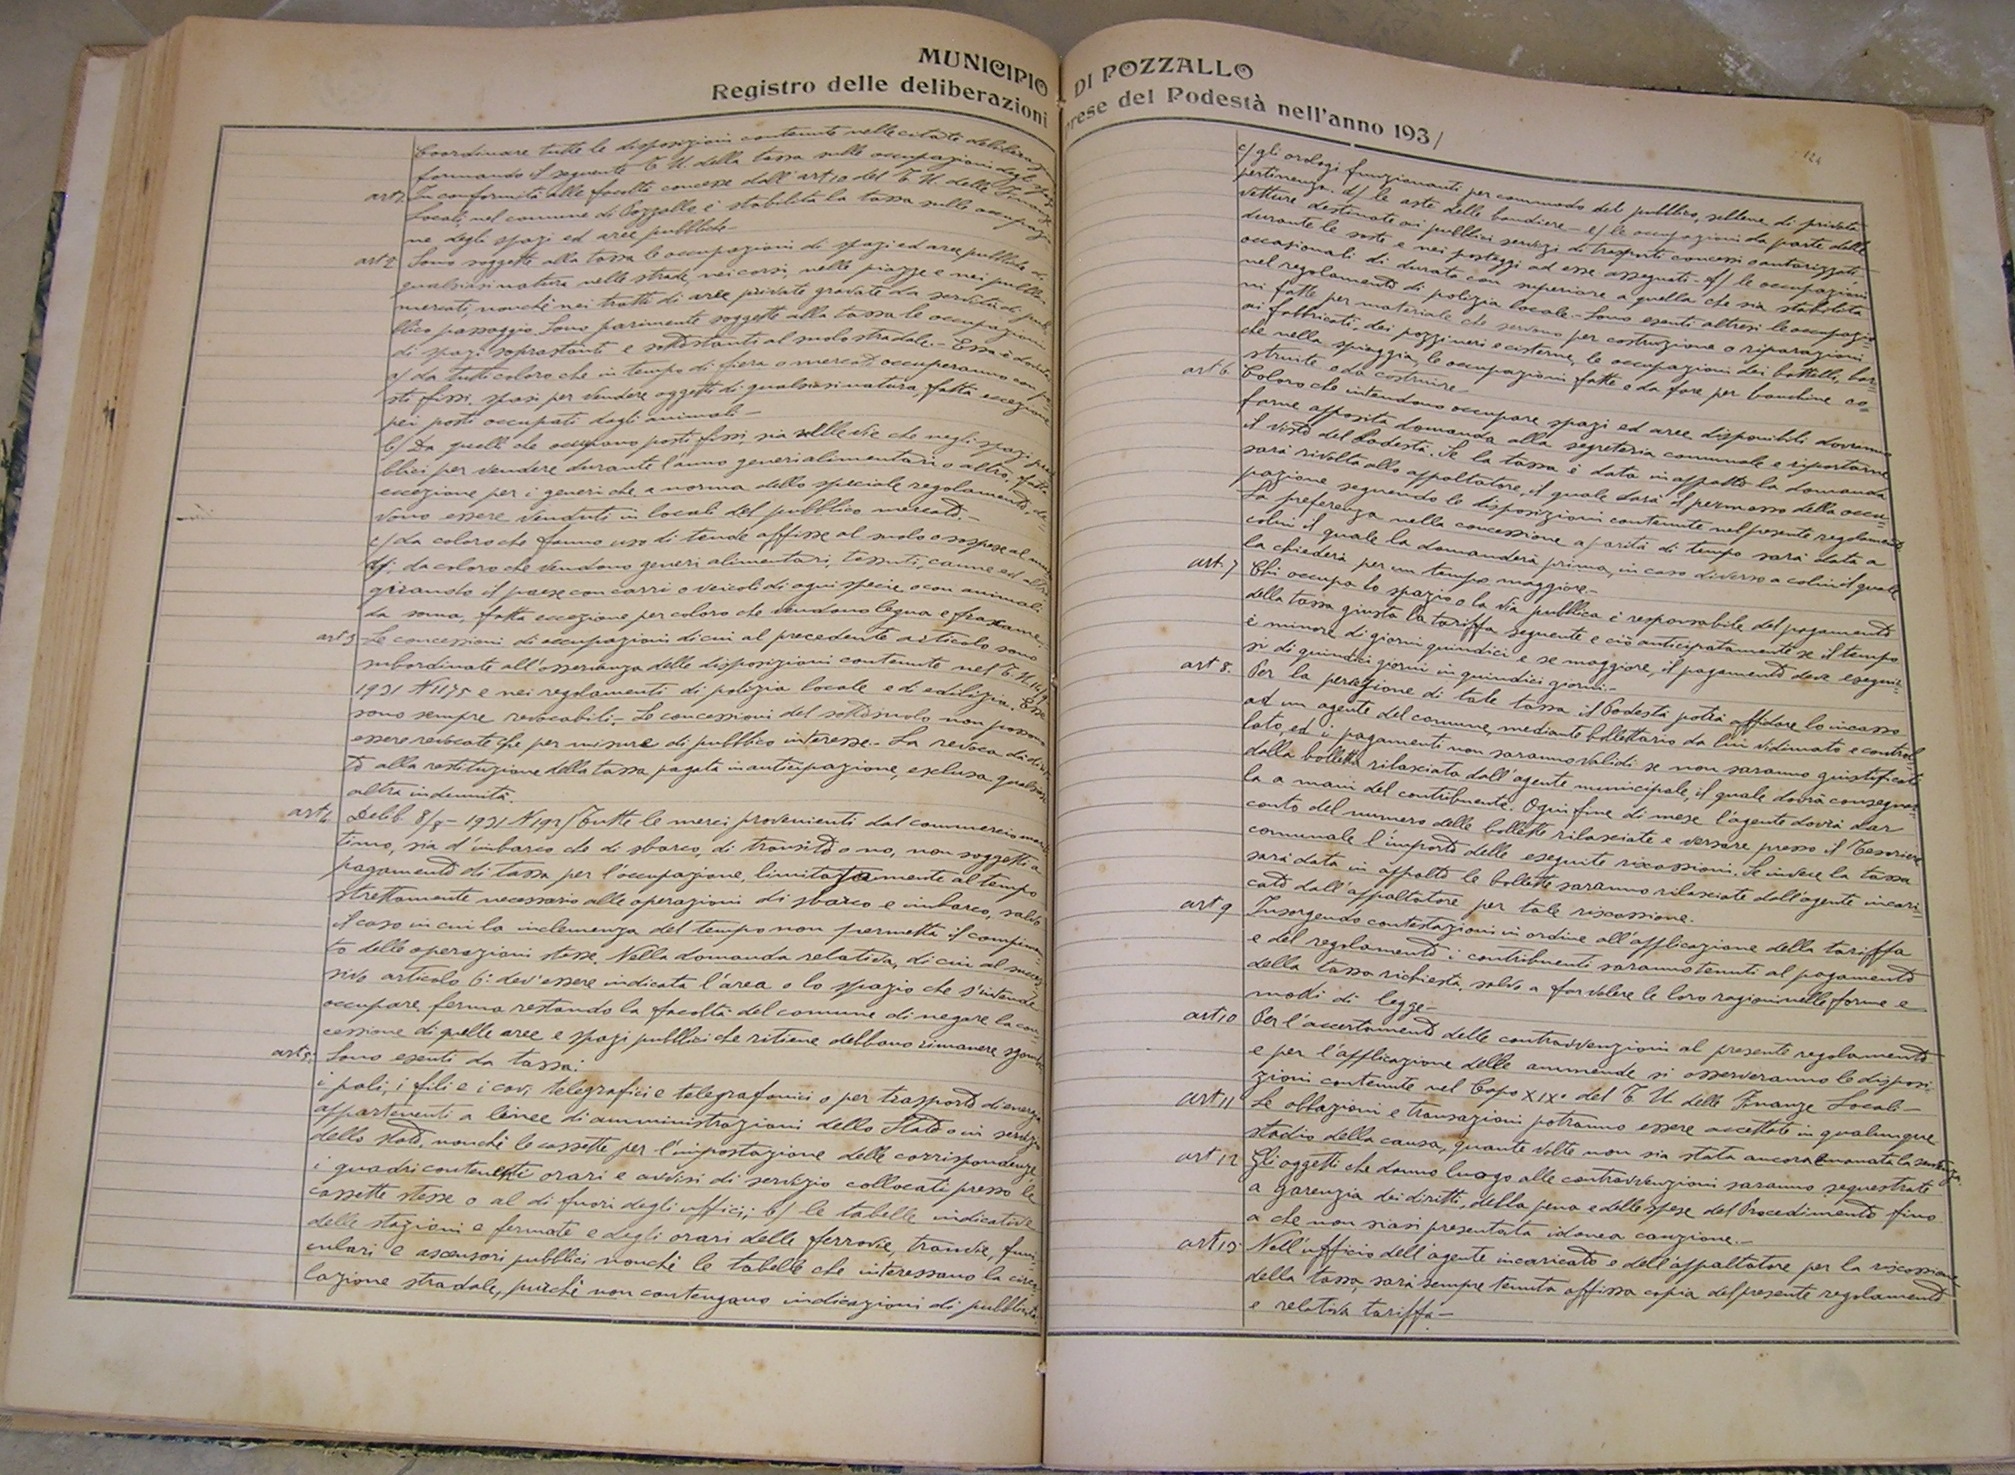 MUNICIPIO DI POZZALLO
Registro delle deliberazioni prese del Podestà nell'anno 193/
124
Coordinare tutte le disposizioni contenute nelle citate
formando il seguente T. U. della tassa sulle occupazioni degli spazi
art 1. In conformità alle facoltà concesse dall'art 10 del T. U. delle Finanze
Locali, nel comune di Pozzallo è stabilita la tassa sulle occupazio
ne degli spazi ed aree pubbliche-
art 2 Sono soggette alla tassa le occupazioni di spazi ed aree pubbliche di
qualsiasi natura nelle strade, nei corsi, nelle piazze e nei pubblici
mercati, nonchè nei tratti di aree private gravate da servitù di pub
blico passaggio. Sono parimente soggette alla tassa le occupazioni
di spazi soprastanti e sottostanti al suolo stradale.- Essa è dovuta
a/ da tutti coloro che in tempo di fiera o mercato occuperanno con po
sti fissi, spazi per vendere oggetti di qualsiasi natura, fatta eccezione
pei posti occupati dagli animali-
b/ Da quelli che occupano posti fissi sia nelle vie che negli spazi pub
blici per vendere durante l'anno generi alimentari o altro, fatta
eccezione per i generi che a norma dello speciale regolamento, de-
vono essere venduti in locali del pubblico mercato.-
c/ da coloro che fanno uso di tende affisse al suolo o sospese al muro
d/ da coloro che vendono generi alimentari, tessuti, canne ed altro
girando il paese con carri o veicoli di ogni specie o con animali
da soma, fatta eccezione per coloro che vendono legna e frascame.
art 3 Le concessioni di occupazioni di cui al precedente articolo sono
subordinate all'osservanza delle disposizioni contenute nel T. U. 14/9
1931 N 1175 e nei regolamenti di polizia locale e di edilizia. Esse
sono sempre revocabili.- Le concessioni del sottosuolo non possono
essere revocate che per misure di pubblico interesse.- La revoca dà dirit
to alla restituzione della tassa pagata in anticipazione, esclusa qualsiasi
altra indennità.
art 4 Delib. 8/8- 1931 N 192/ Tutte le merci provenienti dal commercio marit
timo, sia d'imbarco che di sbarco, di transito o no, non soggette a
pagamento di tassa per l'occupazione, limitatamente al tempo
strettamente necessario alle operazioni di sbarco e imbarco, salvo
il caso in cui la inclemenza del tempo non permetta il compimen
to delle operazioni stesse. Nella domanda relativa, di cui al succes
sivo articolo 6° dev'essere indicata l'area o lo spazio che s'intende
occupare, ferma restando la facoltà del comune di negare la con
cessione di quelle aree e spazi pubblici che ritiene debbano rimanere sgombri
art 5: Sono esenti da tassa:
i pali, i fili e i cavi telegrafici e telegrafonici o per trasporto di energia
appartenenti a linee di amministrazioni dello Stato o in servizio
dello stato, nonchè le cassette per l'impostazione delle corrispondenze,
i quadri contenenti orari e avvisi di servizio collocati presso le
cassette stesse o al di fuori degli uffici; b/ le tabelle indicative
delle stazioni e fermate e degli orari delle ferrovie, tranvie, funi
culari e ascensori pubblici nonchè le tabelle che interessano la circo
lazione stradale, purchè non contengano indicazioni di pubblicità
c/ gli orologi funzionanti per commodo del pubblico, sebbene di privata
pertinenza. d/ le aste delle bandiere - e/ le occupazioni da parte delle
vetture destinate ai pubblici servizi di trasporti concessi o autorizzati
durante le soste e nei posteggi ad esse assegnati - f/ le occupazioni
occasionali di durata non superiore a quella che sia stabilita
nel regolamento di polizia locale.- Sono esenti altresì le occupazio
ni fatte per materiale che servono per costruzione o riparazioni
ai fabbricati, dei pozzi neri e cisterne, le occupazioni dei battelli, bar=
che nella spiaggia, le occupazioni fatte o da fare per banchine co=
struite o da costruire-
art 6 Coloro che intendono occupare spazi ed aree disponibili dovranno
farne apposita domanda alla segreteria comunale e riportarne
il visto del Podestà. Se la tassa è data in appalto la domanda
sarà rivolta allo appaltatore, il quale darà il permesso della occu=
pazione seguendo le disposizioni contenute nel presente regolamento
La preferenza nella concessione a parità di tempo sarà data a
colui il quale la domanderà prima, in caso diverso a colui il quale
la chiederà per un tempo maggiore.-
art 7 Chi occupa lo spazio o la via pubblica è responsabile del pagamento
della tassa giusta la tariffa seguente e ciò anticipatamente se il tempo
è minore di giorni quindici e se maggiore, il pagamento deve eseguir=
si di quindici giorni in quindici giorni.-
art 8. Per la percezione di tale tassa il Podestà potrà affidare lo incasso
ad un agente del comune, mediante bollettario da lui vidimato e control=
lato, ed i pagamenti non saranno validi se non saranno giustificati
dalla bolletta rilasciata dall'agente municipale, il quale dovrà consegnar
la a mani del contribuente. Ogni fine di mese l'agente dovrà dar
conto del numero delle bollette rilasciate e versare presso il Tesoriere
comunale l'importo delle eseguite riscossioni. Se invece la tassa
sarà data in appalto le bollette saranno rilasciate dall'agente incari=
cato dall'appaltatore per tale riscossione.
art 9 Insorgendo contestazioni in ordine all'applicazione della tariffa
e del regolamento i contribuenti saranno tenuti al pagamento
della tassa richiesta, salvo a far valere le loro ragioni nelle forme e
modi di legge-
art 10 Per l'accertamento delle contravvenzioni al presente regolamento
e per l'applicazione delle ammende si osserveranno le disposi
zioni contenute nel Capo XIX° del T. U. delle Finanze Locali-
art 11 Le oblazioni e transazioni potranno essere accettate in qualunque
stadio della causa, quante volte non sia stata ancora emanata la sentenza.
art 12 Gli oggetti che danno luogo alle contravvenzioni saranno sequestrati
a garenzia dei diritti, della pena e delle spese del Procedimento fino
a che non siasi presentata idonea cauzione.-
art 13. Nell'ufficio dell'agente incaricato e dell'appaltatore per la riscossione
della tassa, sarà sempre tenuta affissa copia del presente regolamento
e relativa tariffa-